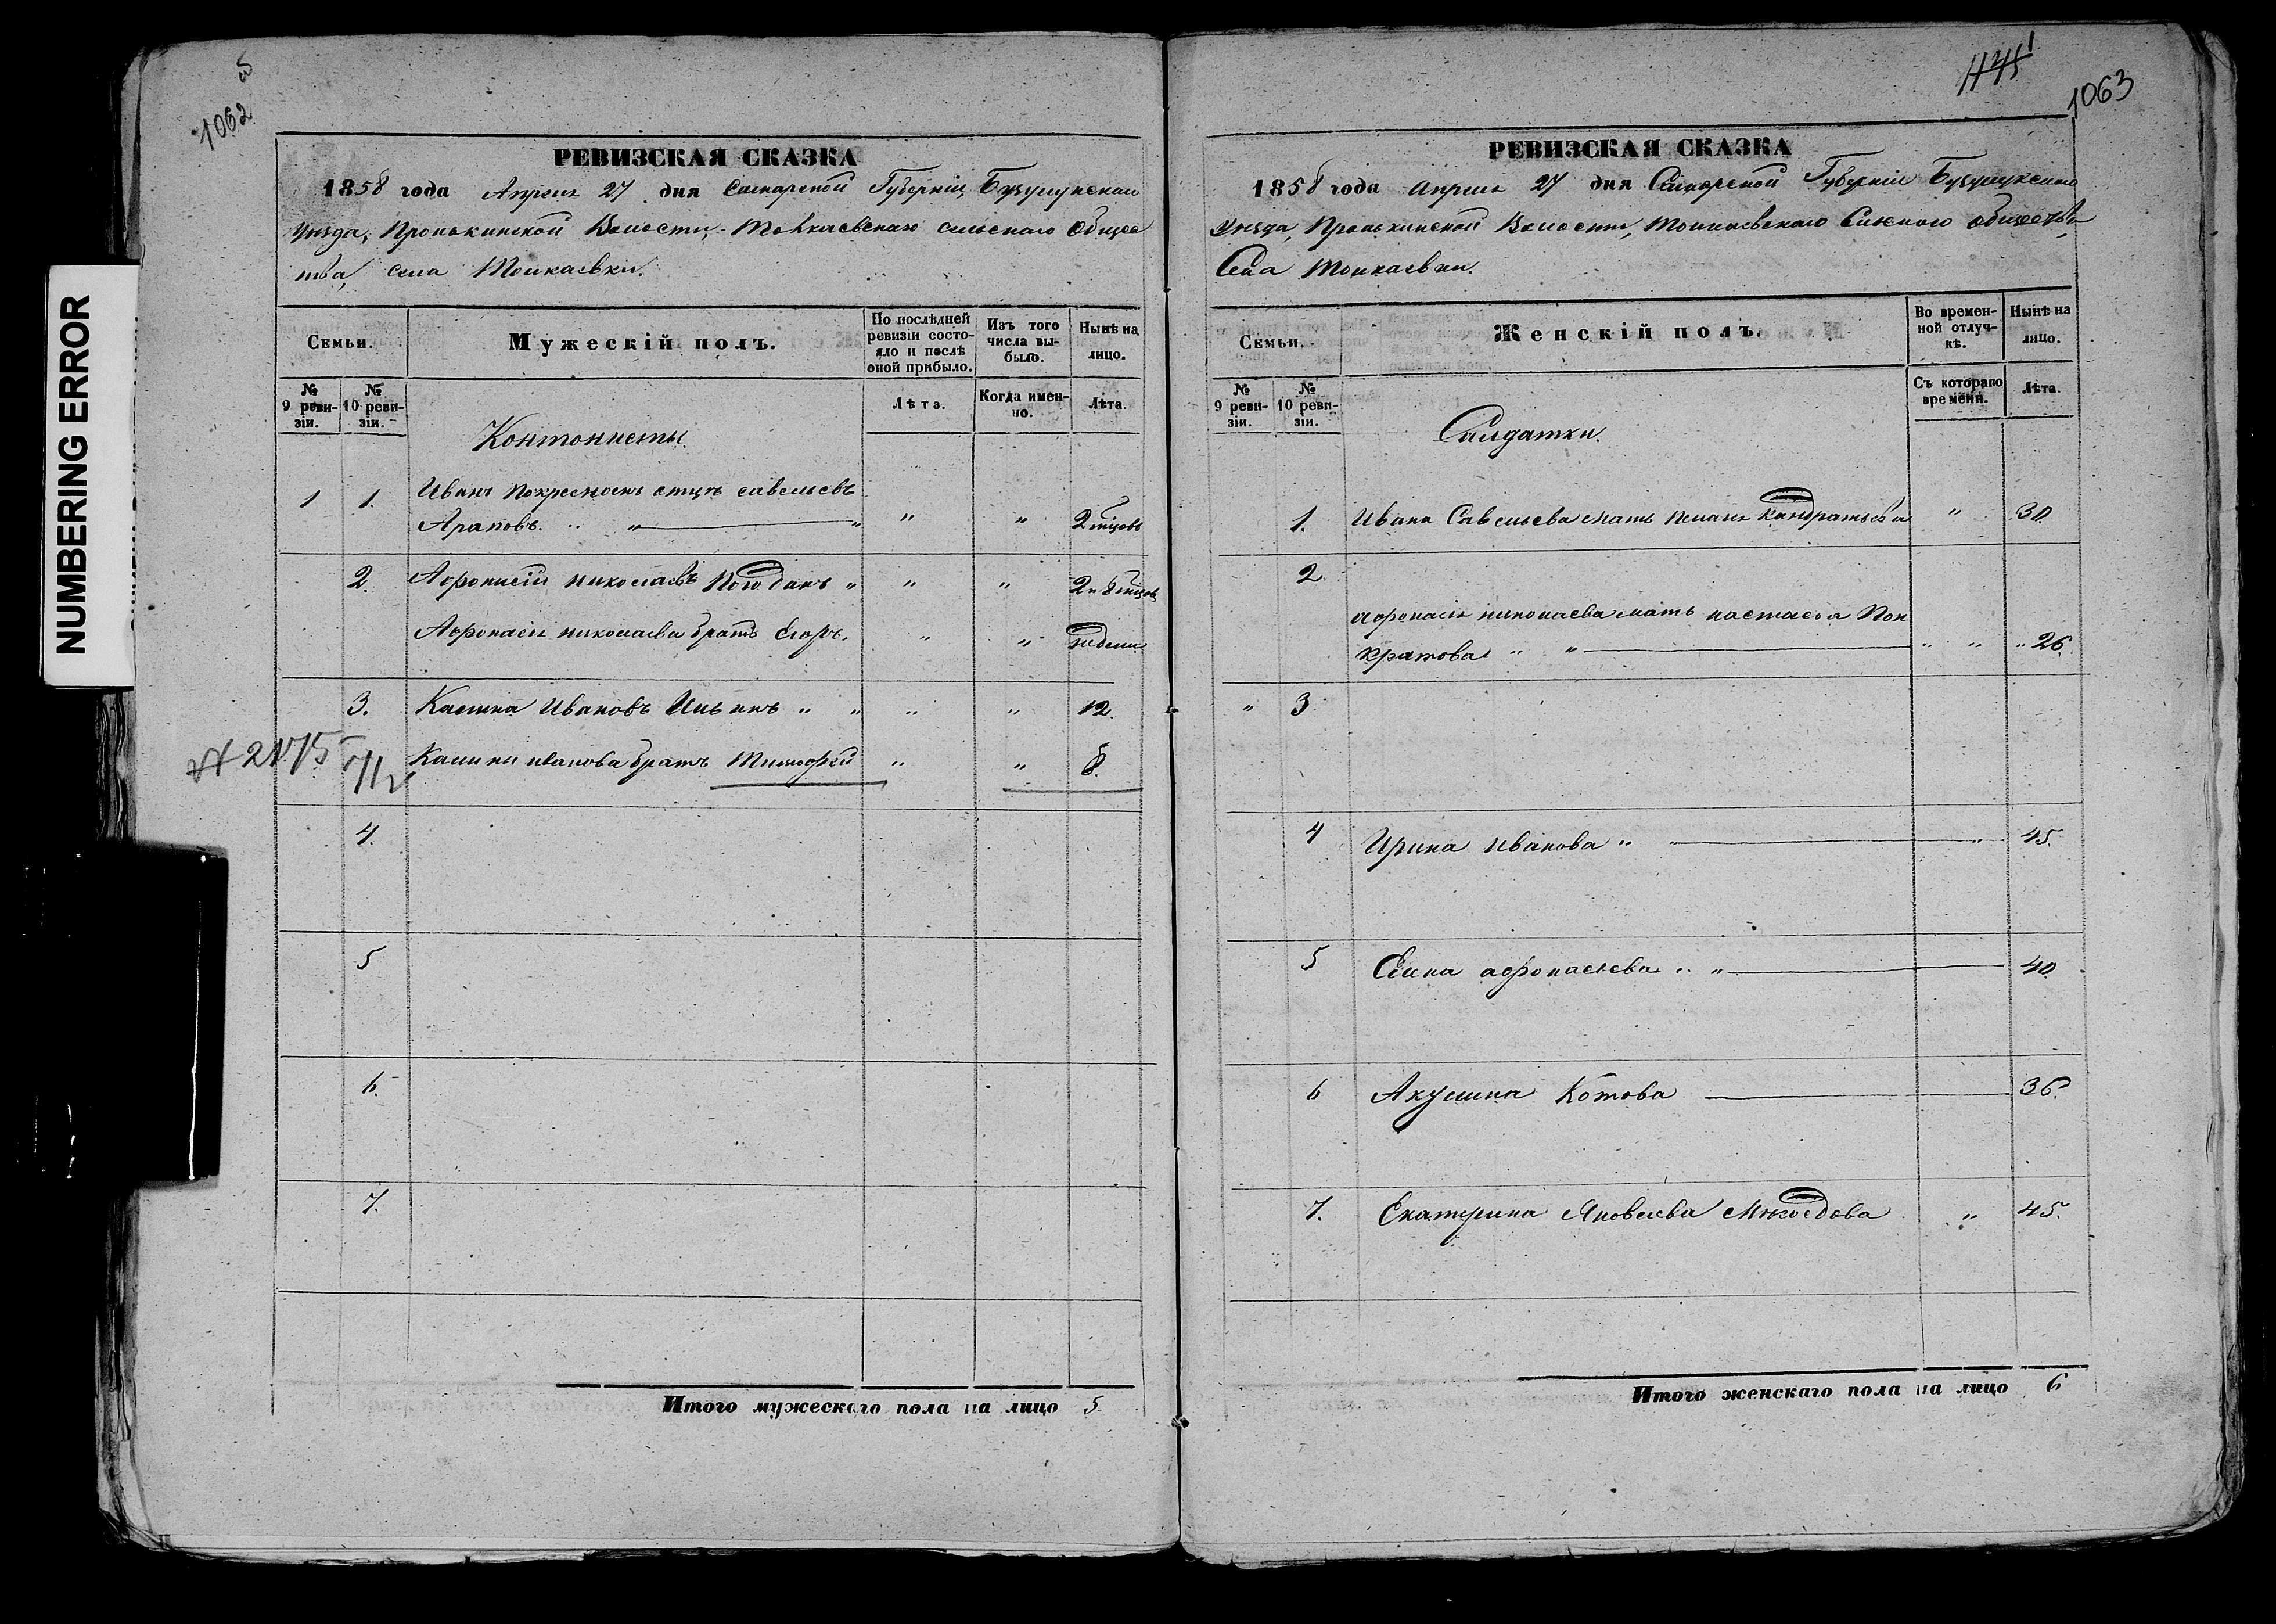 NUMBERING ERROR
5
1062
РЕВИЗСКАЯ СКАЗКА
1858 года Апреля 27 дня Самарской Губерніи, Бузулукскаго
Уезда, Пронькинской Волости, Толкаевскаго сельскаго Общес
тва, села Толкаевки.
Семьи.
Мужескій полъ.
По послѣдней ревизіи состояло и послѣ оной прибыло.
Изъ того числа выбыло.
Нынѣ на лицо.
№ 9 ревизіи.
№ 10 ревизіи.
Лѣта.
Когда именно.
Лѣта.
Контонисты
1 1. Иванъ покрестному отцу савельевъ
Араповъ " " " " 2 мѣсов
2. Афонасій николаевъ " " " 2 и 8
Афонасія николаева братъ Егоръ. " " недели
3. Калина Ивановъ Ильинъ " " " " 12.
№ 2175
Калины иванова братъ Тимофей " " 8.
4.
5
6.
7.
Итого мужескаго пола на лицо 5
1063
РЕВИЗСКАЯ СКАЗКА
1858 года апреля 27 дня Самарской Губерніи Бузулукскаго
Уезда, Пронькинской Волости, Толкаевскаго Сельскаго общества
Села Толкаевки.
Семьи.
Женскій полъ.
Во временной отлучкѣ.
Нынѣ на лицо.
№ 9 ревизіи.
№ 10 ревизіи.
Съ котораго времени.
Лѣта.
Салдатки.
1. Ивана Савельева мать Кандратьева " 30.
2
афонасія николаева мать настасья Пон
кратова " " " " " 26.
" 3
4 Ирина иванова " " 45.
5 Елина афонасьева " " 40.
6 Акулина Котова 36.
7. Екатерина Яковлева Мясоедова " 45.
Итого женскаго пола на лицо 6